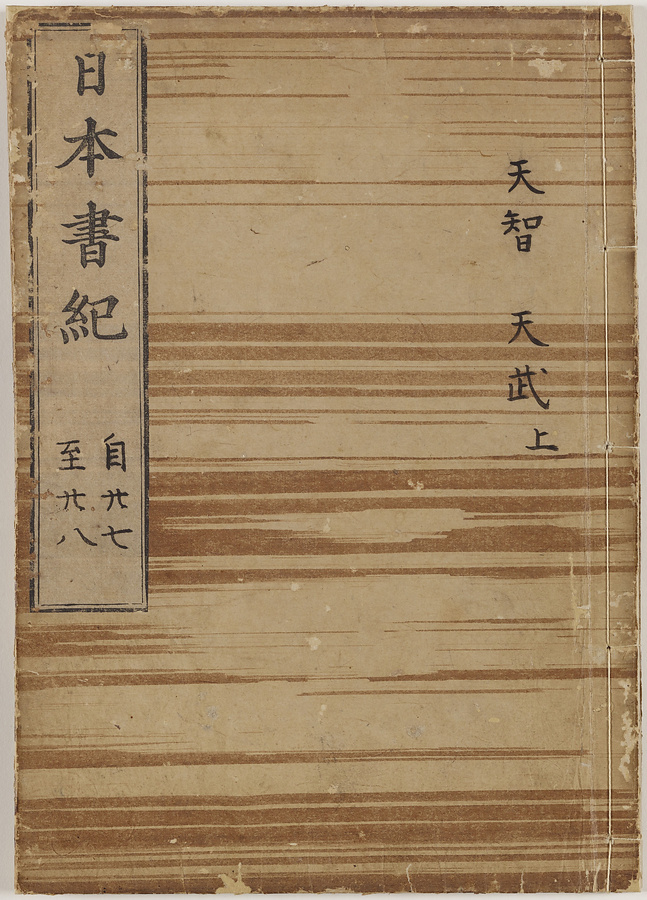 天智 天武上
日本書紀
自廿七
至廿八